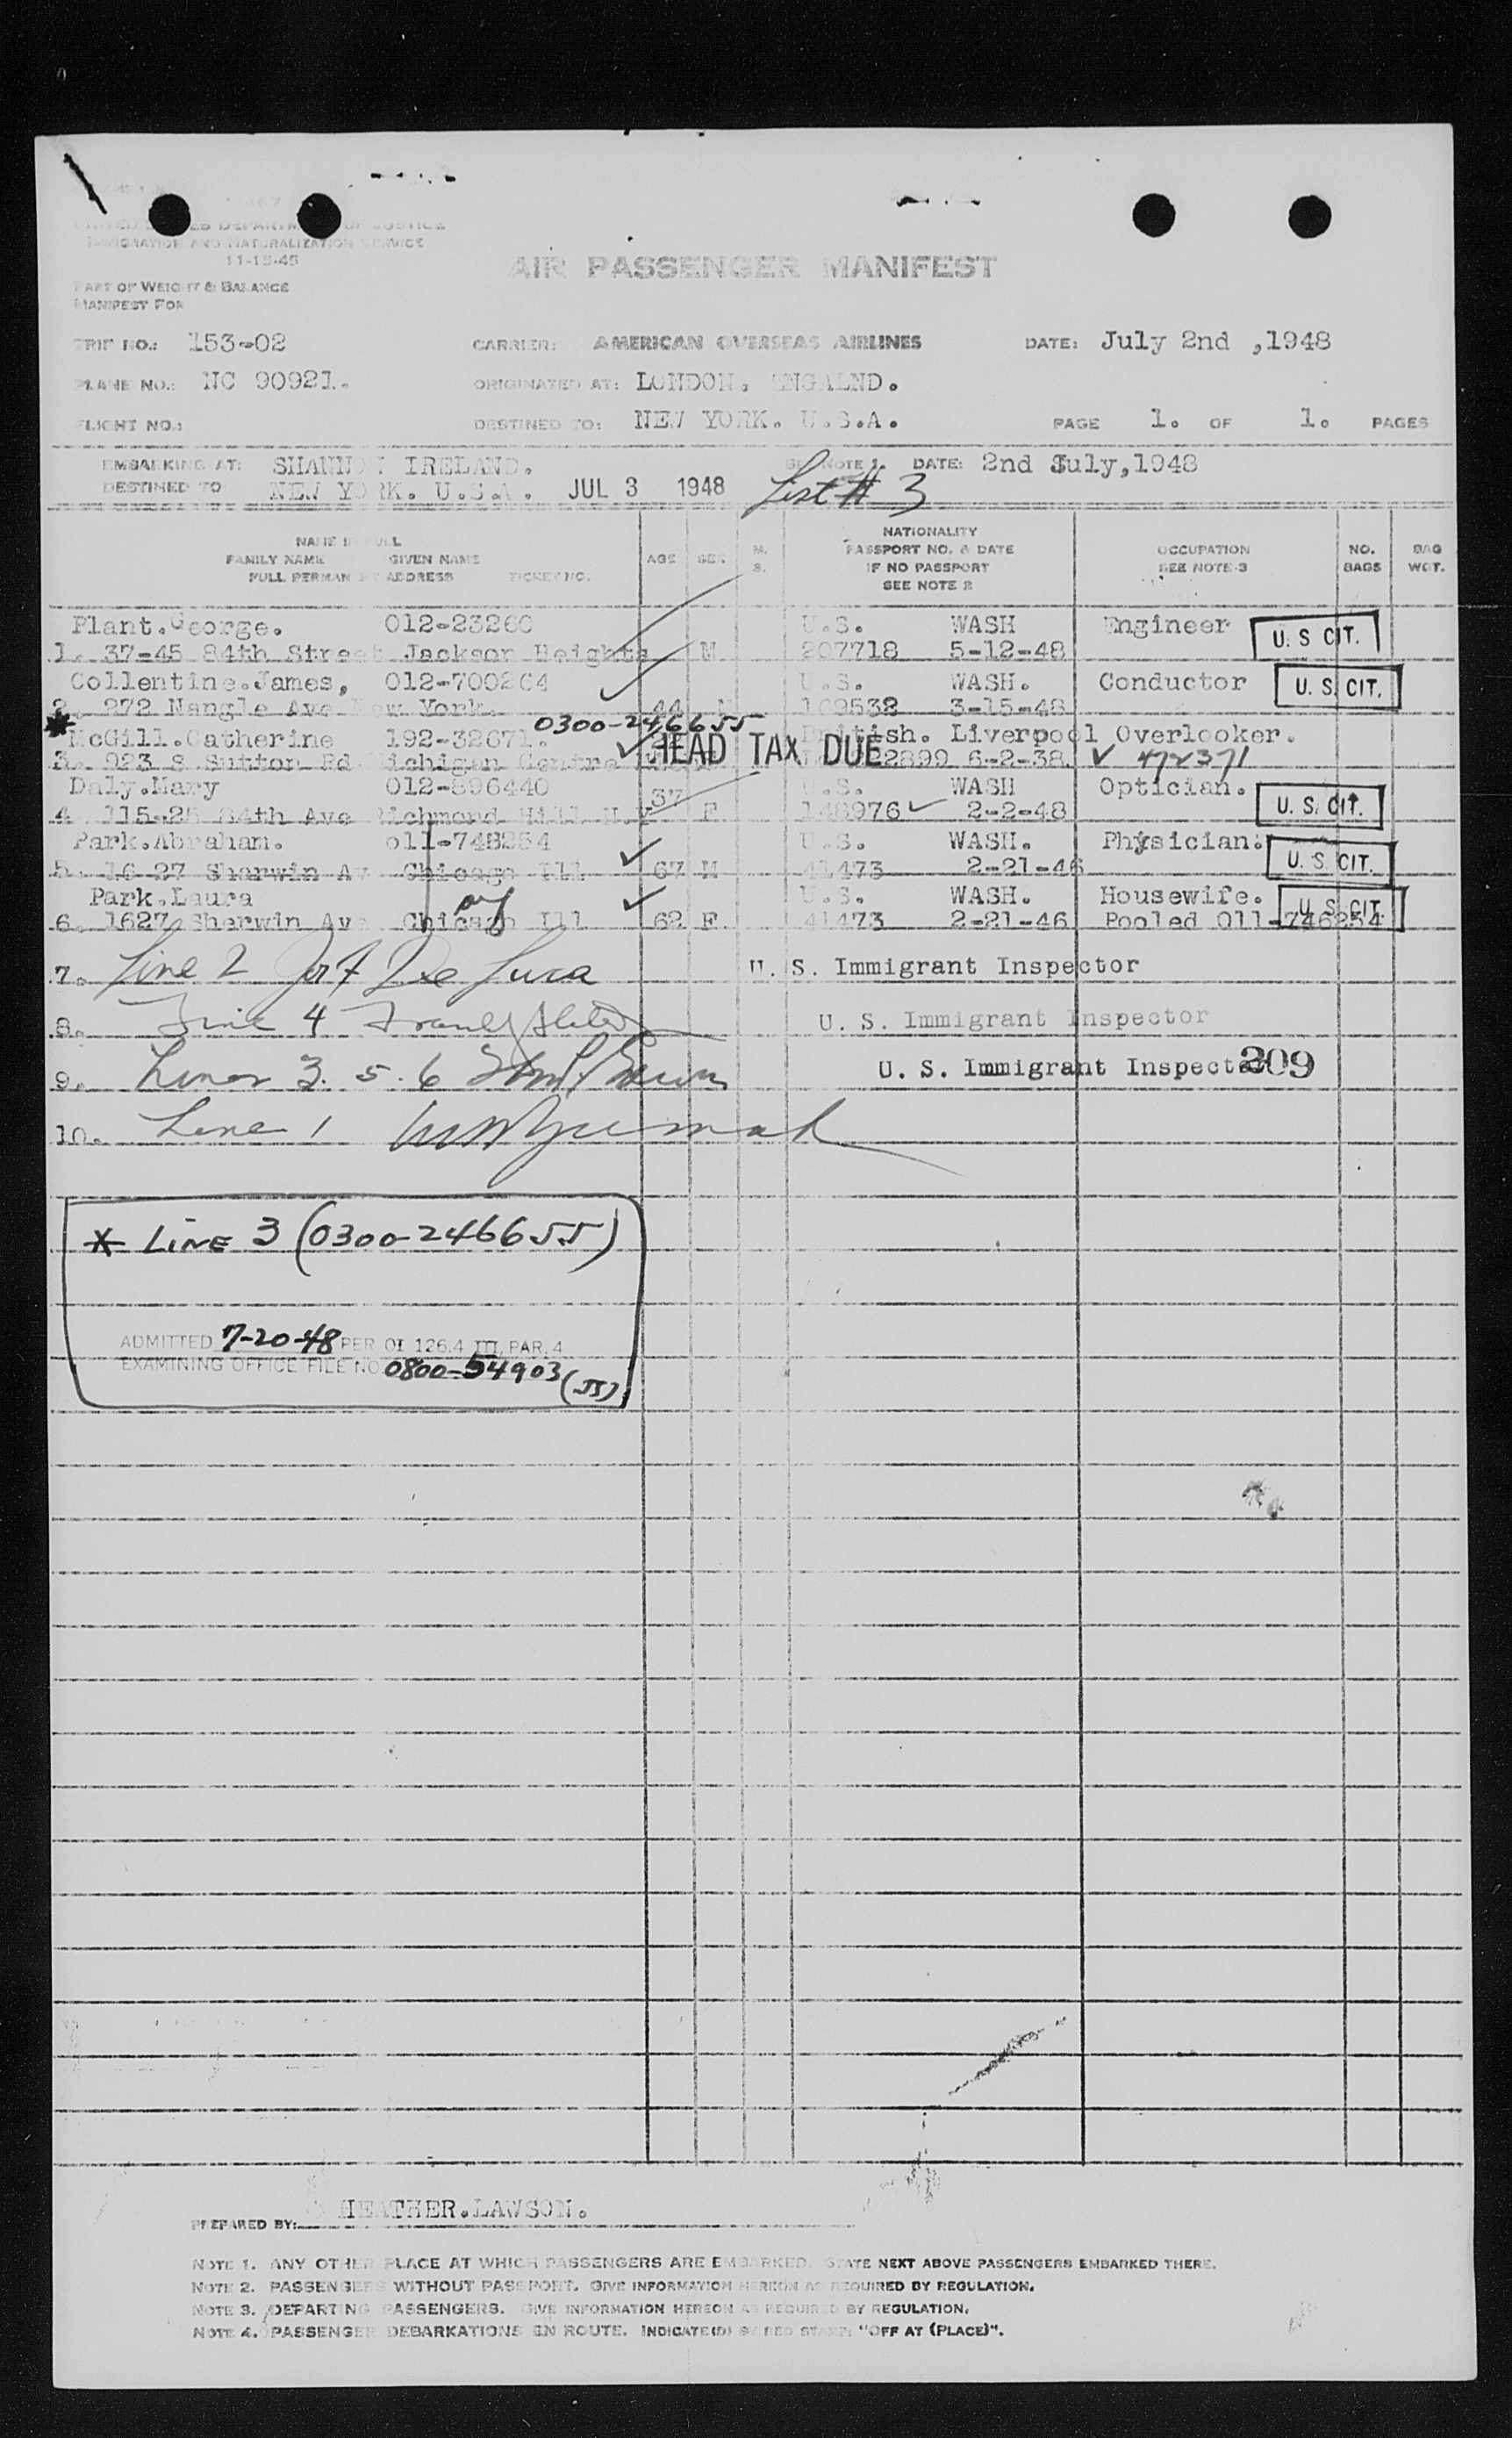 UNITED STATES DEPARTMENT OF JUSTICE
IMMIGRATION AND NATURALIZATION SERVICE
11-15-45
AIR PASSENGER MANIFEST
PART OF WEIGHT & BALANCE
MANIFEST FOR
TRIP NO.: 153-02 CARRIER: AMERICAN OVERSEAS AIRLINES DATE: July 2nd ,1948
PLANE NO.: NC 90921. ORIGINATED AT: LONDON. ENGALND.
FLIGHT NO.: DESTINED TO: NEW YORK. U.S.A. PAGE 1. OF 1. PAGES
EMBARKING AT: SHANNON IRELAND. SEE NOTE 1. DATE: 2nd July,1948
DESTINED TO NEW YORK. U.S.A. JUL 3 1948 List # 3
NAME IN FULL NATIONALITY
FAMILY NAME GIVEN NAME AGE SEX M. S. PASSPORT NO. & DATE OCCUPATION NO. BAG
FULL PERMANENT ADDRESS TICKET NO. IF NO PASSPORT SEE NOTE 3 BAGS WGT.
SEE NOTE 2
Plant.George. 012-23260 U.S. WASH Engineer U. S CIT.
1. 37-45 84th Street Jackson Heights M 207718 5-12-48
Collentine.James, 012-700264 U.S. WASH. Conductor U. S. CIT.
2. 272 Nangle Ave New York. 44 M 3-15-48
0300-246655
* McGill.Catherine 192-32671. British. Liverpool Overlooker.
HEAD TAX DUE
3. 923 S Sutton Rd Michigan Centre 2899 6-2-38. 472371
Daly.Mary 012-896440 U.S. WASH Optician.
4. 115-25 84th Ave Richmond Hill N.Y 37 F 148976 2-2-48 U. S. CIT.
Park.Abraham. o11-748254 U.S. WASH. Physician.
5. 16-27 Sherwin Av Chicago Ill 67 M 41473 2-21-46 U. S. CIT.
Park.Laura U.S. WASH. Housewife. U. S. CIT
6. 1627 Sherwin Ave Chicago Ill 62 F. 41473 2-21-46 Pooled 011-746254
7. Line 2 De Luca U. S. Immigrant Inspector
8. Line 4 U. S. Immigrant Inspector
9. Lines 3. 5. 6 U. S. Immigrant Inspector 209
10. Line 1
* LINE 3 (0300-246655)
ADMITTED 7-20-48 PER OI 126.4 III, PAR. 4
EXAMINING OFFICE FILE NO 0800-54903 (JJ)
PREPARED BY: HEATHER.LAWSON.
NOTE 1. ANY OTHER PLACE AT WHICH PASSENGERS ARE EMBARKED. STATE NEXT ABOVE PASSENGERS EMBARKED THERE.
NOTE 2. PASSENGERS WITHOUT PASSPORT. GIVE INFORMATION HEREON AS REQUIRED BY REGULATION.
NOTE 3. DEPARTING PASSENGERS. GIVE INFORMATION HEREON AS REQUIRED BY REGULATION.
NOTE 4. PASSENGER DEBARKATIONS EN ROUTE. INDICATE(D) BY RED STAMP: "OFF AT (PLACE)".